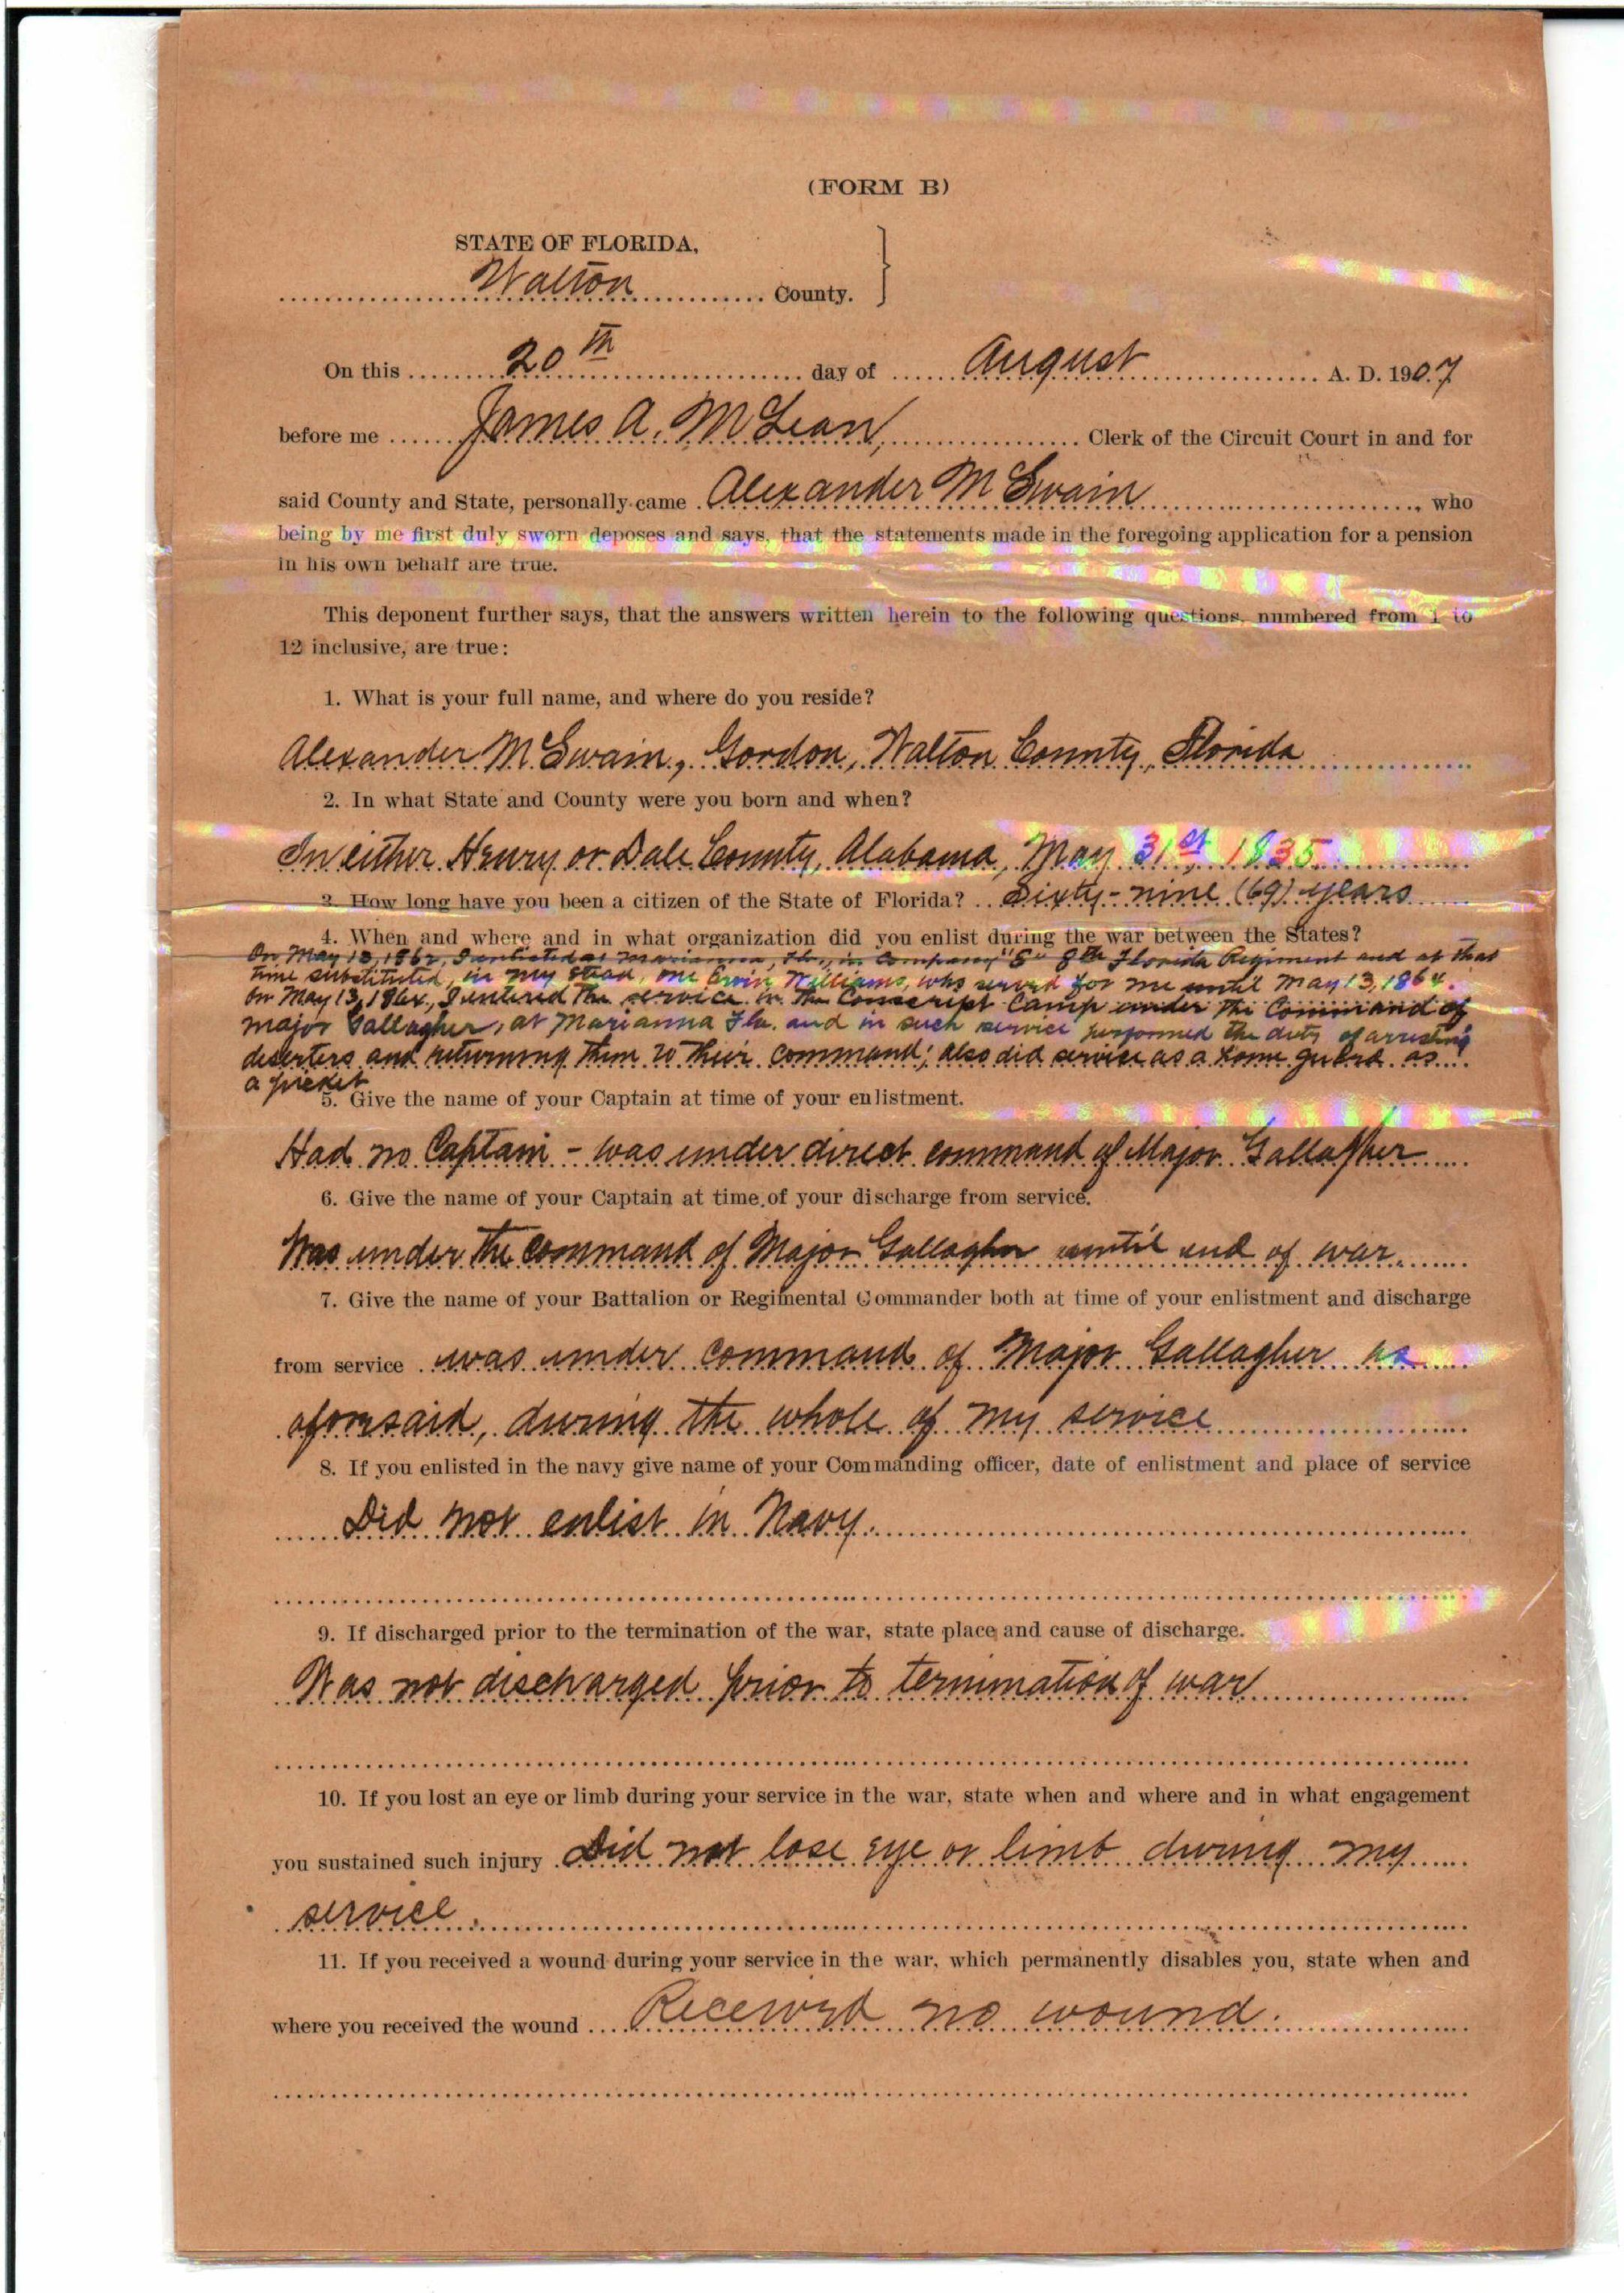 (FORM B)
STATE OF FLORIDA,
Walton County.
On this 20th day of August A. D. 1907
before me James A. McLean, Clerk of the Circuit Court in and for
said County and State, personally came Alexander McSwain, who
being by me first duly sworn deposes and says, that the statements made in the foregoing application for a pension
in his own behalf are true.
This deponent further says, that the answers written herein to the following questions, numbered from 1 to
12 inclusive, are true:
1. What is your full name, and where do you reside?
Alexander McSwain, Gordon, Walton County, Florida
2. In what State and County were you born and when?
In either Henry or Dale County, Alabama, May 31st, 1835
3. How long have you been a citizen of the State of Florida? Sixty-nine (69) years
4. When and where and in what organization did you enlist during the war between the States?
On May 13, 1862, I enlisted at Marianna, Fla., in Company "E" 8th Florida Regiment and at that
time substituted, in my stead, one Ervin Williams, who served for me until May 13, 1864.
On May 13, 1864, I entered the service in the Conscript Camp under the Command of
Major Gallagher, at Marianna Fla. and in such service performed the duty of arresting
deserters and returning them to their command; also did service as a home guard as
a picket
5. Give the name of your Captain at time of your enlistment.
Had no Captain - was under direct command of Major Gallagher
6. Give the name of your Captain at time of your discharge from service.
Was under the command of Major Gallagher until end of war.
7. Give the name of your Battalion or Regimental Commander both at time of your enlistment and discharge
from service was under command of Major Gallagher as
aforesaid, during the whole of my service
8. If you enlisted in the navy give name of your Commanding officer, date of enlistment and place of service
Did not enlist in Navy.
9. If discharged prior to the termination of the war, state place and cause of discharge.
Was not discharged prior to termination of war
10. If you lost an eye or limb during your service in the war, state when and where and in what engagement
you sustained such injury Did not lose eye or limb during my
service.
11. If you received a wound during your service in the war, which permanently disables you, state when and
where you received the wound Received no wound.